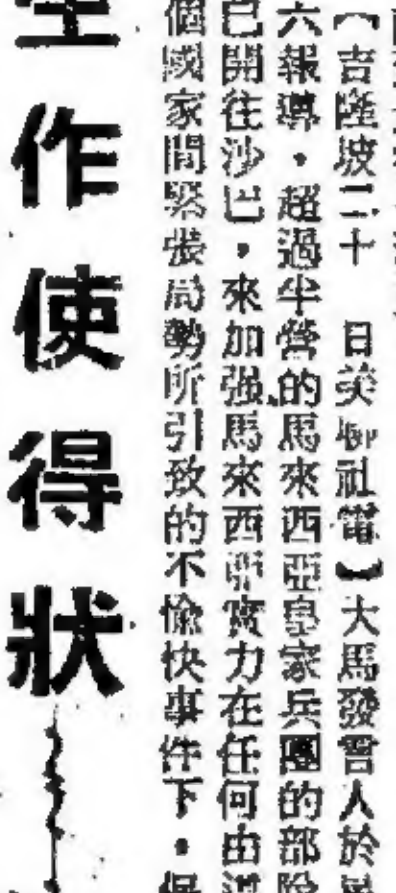 ︹吉隆坡二十 日美聯社電︺大馬發言人於
六報導，超過半營的馬來西亞皇家兵團的部隊
已開往沙巴，來加强馬來西亞實力在任何由
個國家間緊張局勢所引致的不愉快事件下，保
作使得狀